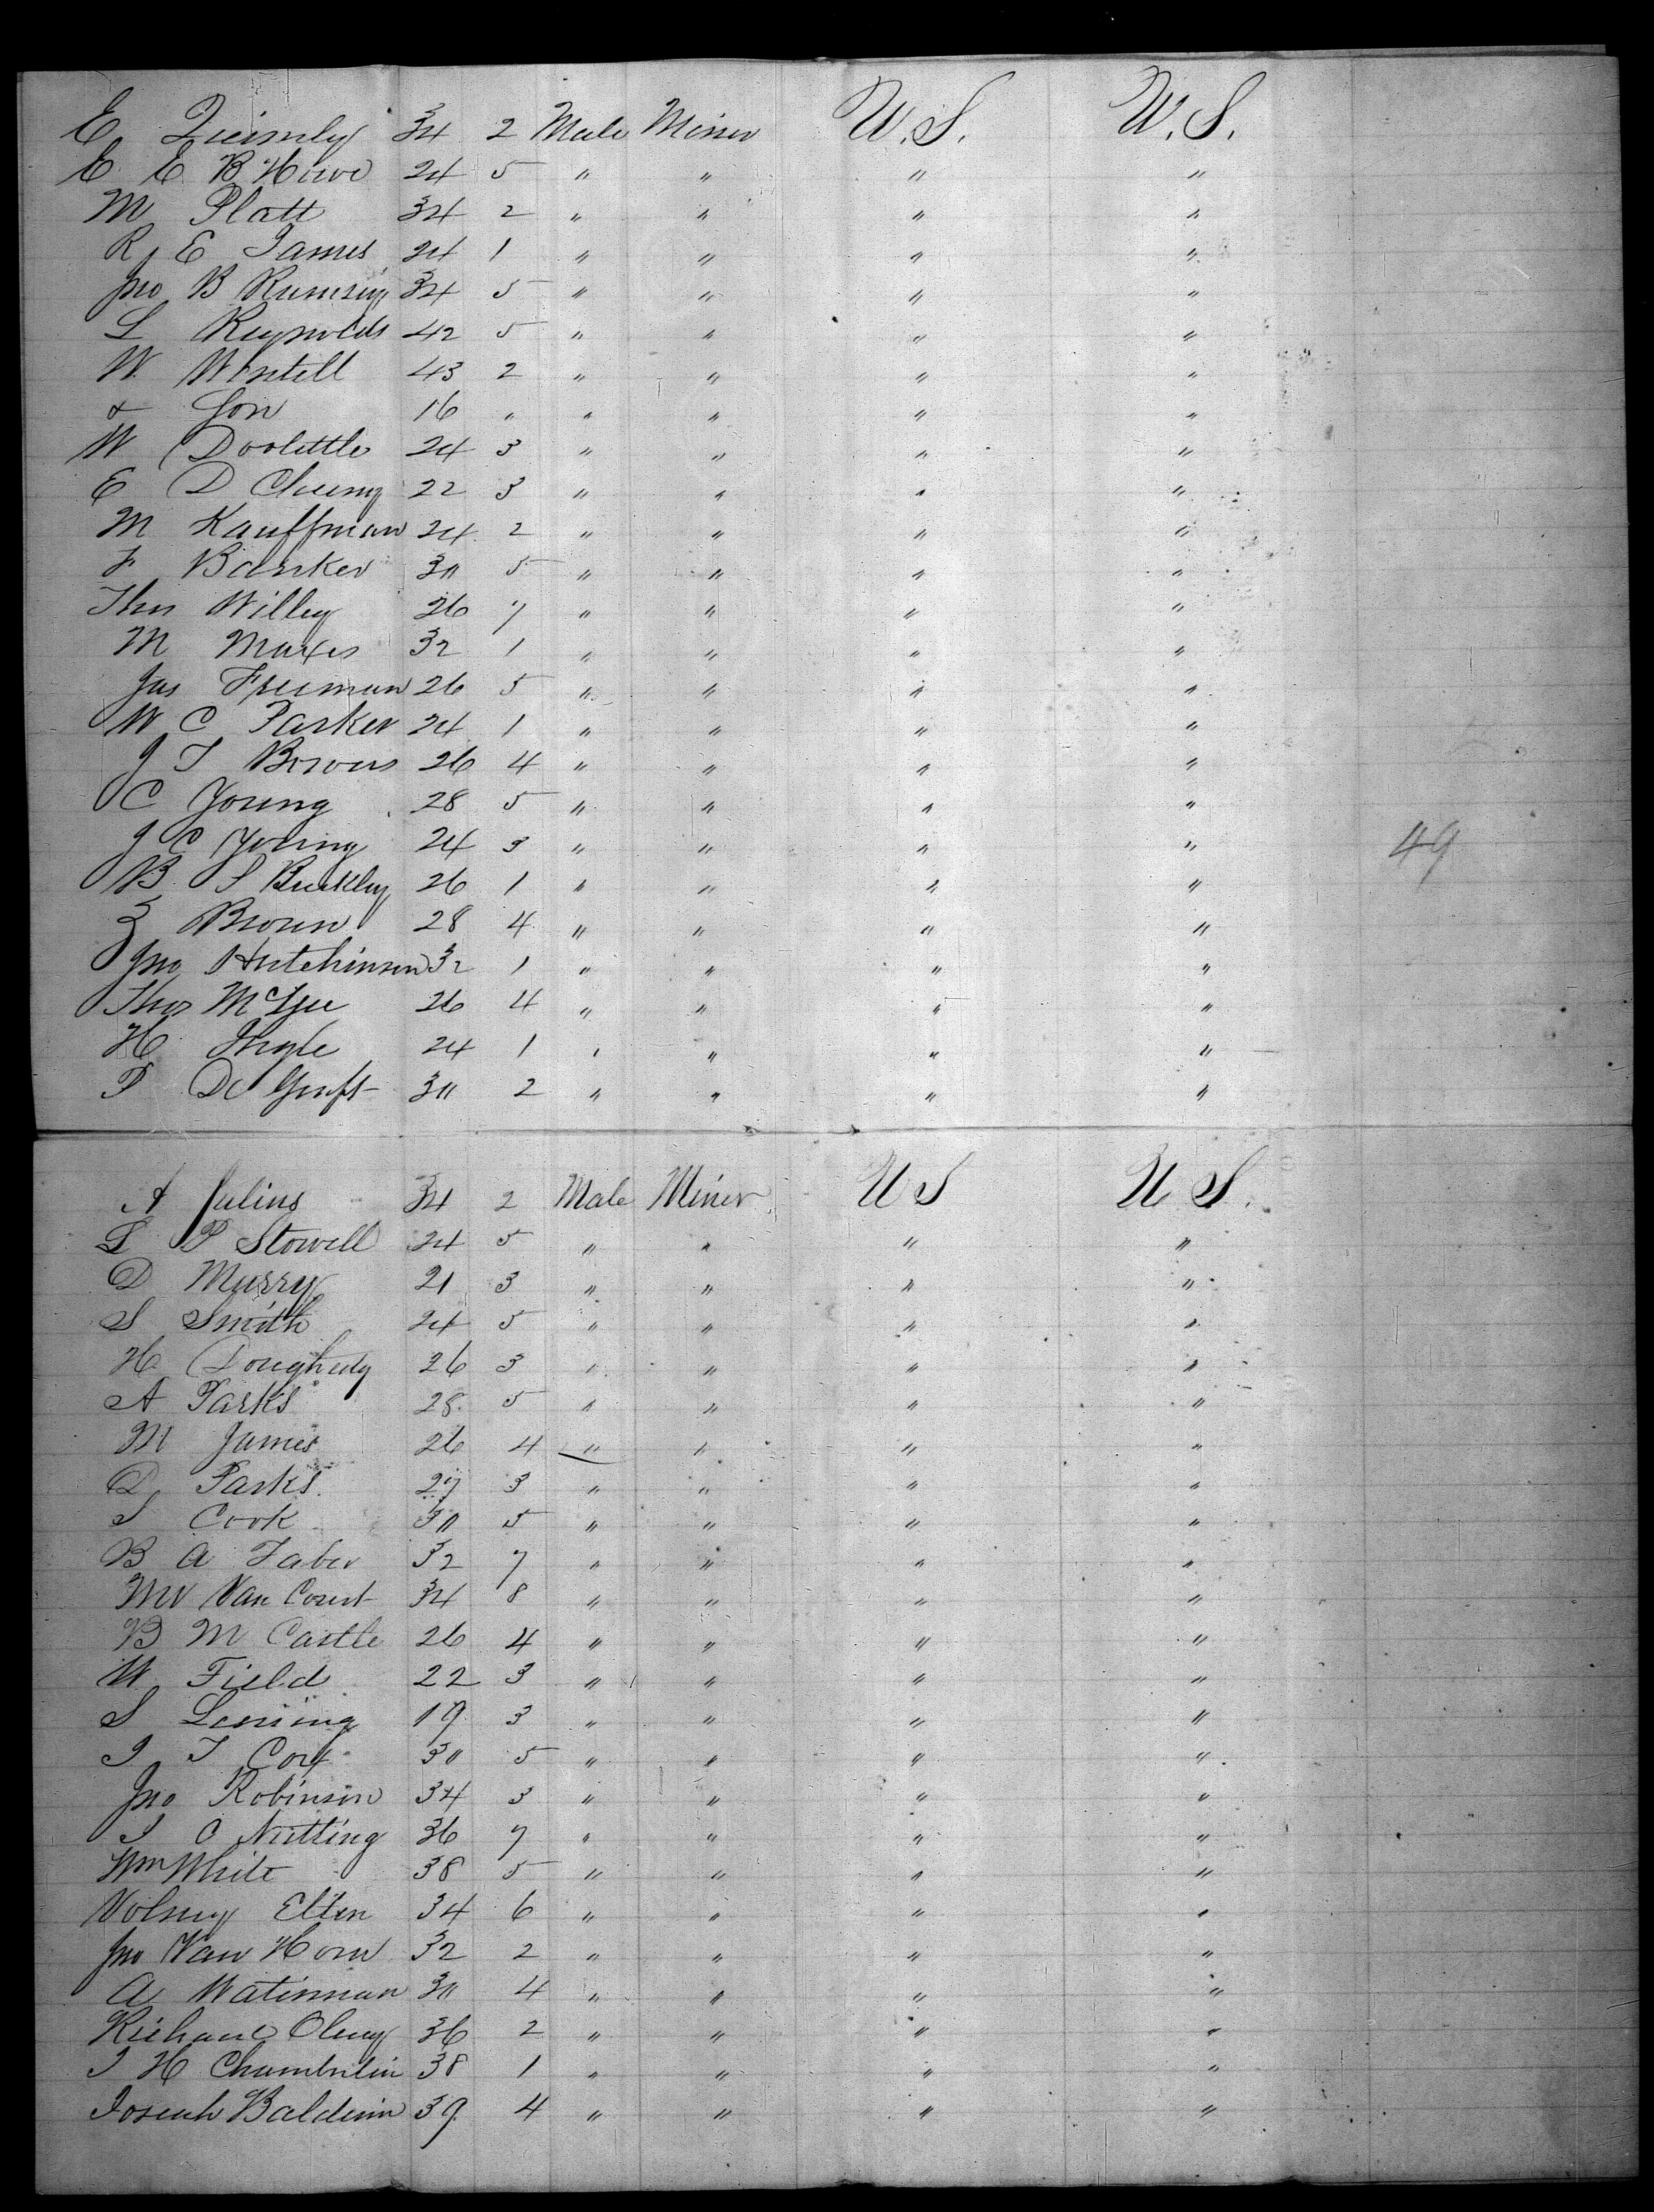 E Quimly 34 2 Male Miner U.S. W.S.
E E B Howe 24 5 " " " "
M Platt 34 2 " " " "
R E James 24 1 " " " "
Jno B Rumsey 34 5 " " " "
L Reynolds 42 5 " " " "
W 43 2 " " " "
& Son 16 " " " " "
W Doolittle 24 3 " " " "
E D Cheeny 22 3 " " " "
M Kauffman 24 2 " " " "
F Banker 30 5 " " " "
Thos Willey 26 7 " " " "
M 32 1 " " " "
Jas Freeman 26 5 " " " "
W C Parker 24 1 " " " "
J T Bowers 26 4 " " " "
C Young 28 5 " " " "
J C Young 24 3 " " " " 49
B S Buckley 26 1 " " " "
Z Brown 28 4 " " " "
Jno Hutchinson 32 1 " " " "
Thos McGee 26 4 " " " "
H Ingle 24 1 " " " "
P De Graft 30 2 " " " "
A Julius 34 2 Male Miner U S U S.
L P Stowell 24 5 " " " "
D Murry 21 3 " " " "
S Smith 24 5 " " " "
H Doughedy 26 3 " " " "
A Parks 28 5 " " " "
M James 26 4 " " " "
D Parks 27 3 " " " "
S Cook 30 5 " " " "
B A Faber 32 7 " " " "
Mv Van Court 34 8 " " " "
B M Castle 26 4 " " " "
W Field 22 3 " " " "
S 19 3 " " " "
J T Cox 30 5 " " " "
Jno Robinson 34 3 " " " "
J C Nutting 36 7 " " " "
Wm White 38 5 " " " "
Volney Elten 34 6 " " " "
Jno Van Horn 32 2 " " " "
A Waterman 30 4 " " " "
Richard Olney 36 2 " " " "
J H Chamberlin 38 1 " " " "
Joseah Baldwin 39 4 " " " "